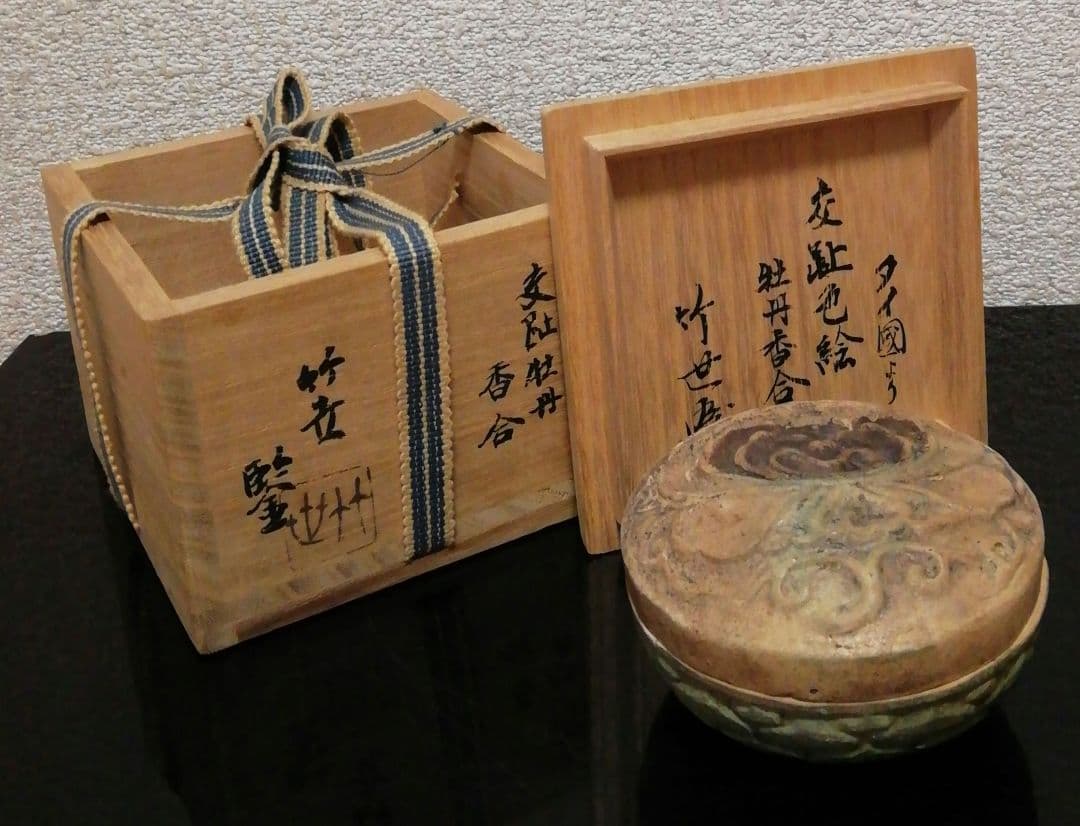 交趾牡丹
香合
竹世
鑒
竹世
タイ國より
交趾色絵
牡丹香合
竹世